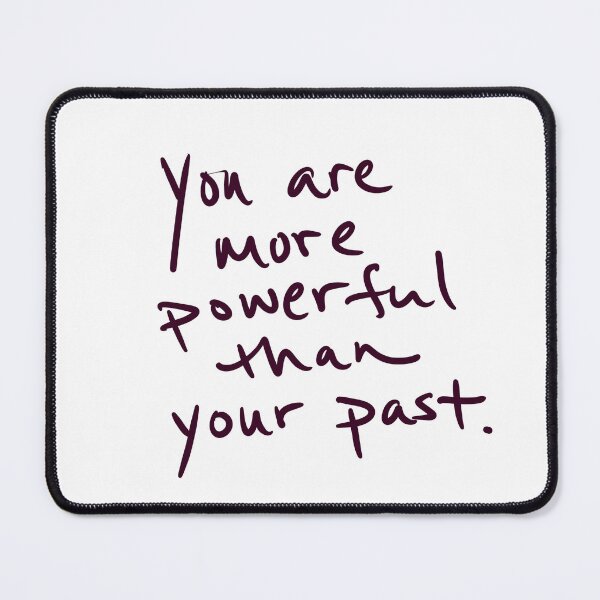 You are
more
powerful
than
your past.